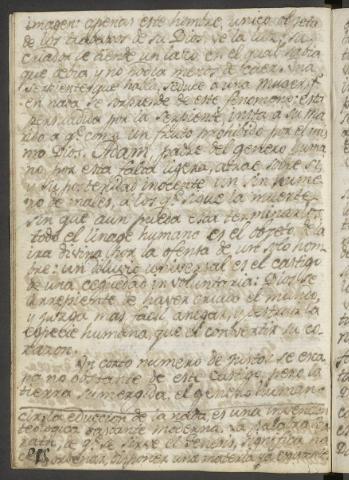 imagen: apenas este hombre, unico objeto
de los trabajos de su Dios ve la luz, su
criador le tiende un lazo en el qual sabia
que devia y no podia menos de caer. Una
serpiente que habla, seduce a una muger, qe
en nada se sorprende de este fenomeno: esta
persuadida por la serpiente, invita a su ma
rido a qe coma un fruto prohibido por el mis
mo Dios. Adam, padre del genero huma
no, por esta falta ligera, atrae sobre si,
y su posteridad inocente un sin nume
ro de males, a los qe sigue la muerte
sin que aun pueda esta terminarlos
todo el linage humano es el objeto de la
ira divina por la ofensa de un solo hom
bre: un diluvio universal es el castigo
de una ceguedad involuntaria: Dios se
arrepiente de haver criado el mundo,
y juzga mas facil anegar, y destruir la
especie humana, que el convertir su co-
razon.
Un corto numero de justos se esca
pa no obstante de este castigo, pero la
tierra sumergida, el genero human-
cir, la educcion de la nada es una invencion
teologica bastante moderna. La palabra
de qe se sirve el Genesis, significa
ordenar, disponer una materia ya